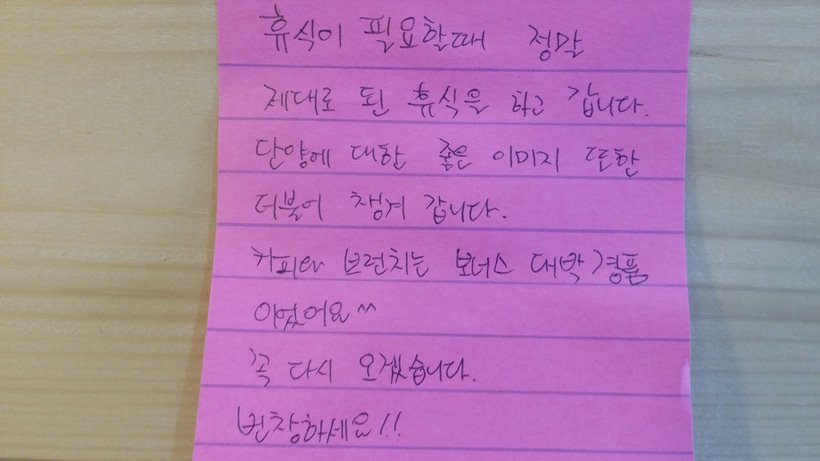 휴식이 필요할때 정말
제대로 된 휴식을 하고 갑니다.
단양에 대한 좋은 이미지 또한
더불어 챙겨 갑니다.
커피와 브런치는 보너스 대박 경품
이었어요^^
꼭 다시 오겠습니다.
번창하세요!!